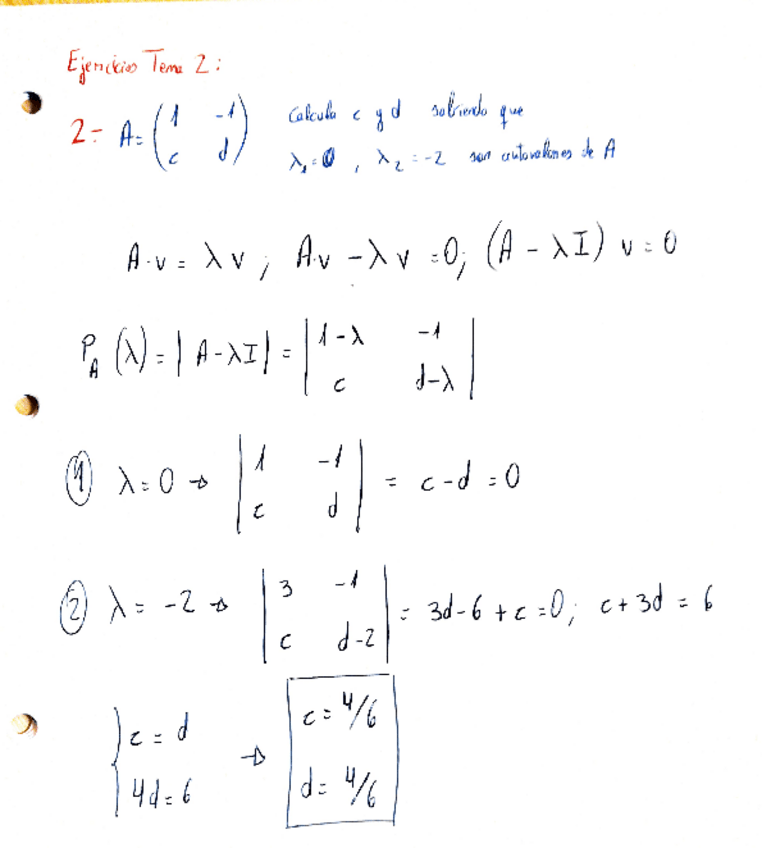 Ejercicios Tema 2:
2- A = ( 1 -1 ; c d ) Calcula c y d sabiendo que
λ₁ = 0 , λ₂ = -2 son autovalores de A
A·v = λv ; A·v - λv = 0; (A - λI) v = 0
P_A (λ) = | A-λI | = | 1-λ -1 ; c d-λ |
① λ = 0 → | 1 -1 ; c d | = c-d = 0
② λ = -2 → | 3 -1 ; c d-2 | = 3d-6+c = 0; c+3d = 6
{ c = d ; 4d = 6 → c = 4/6
d = 4/6